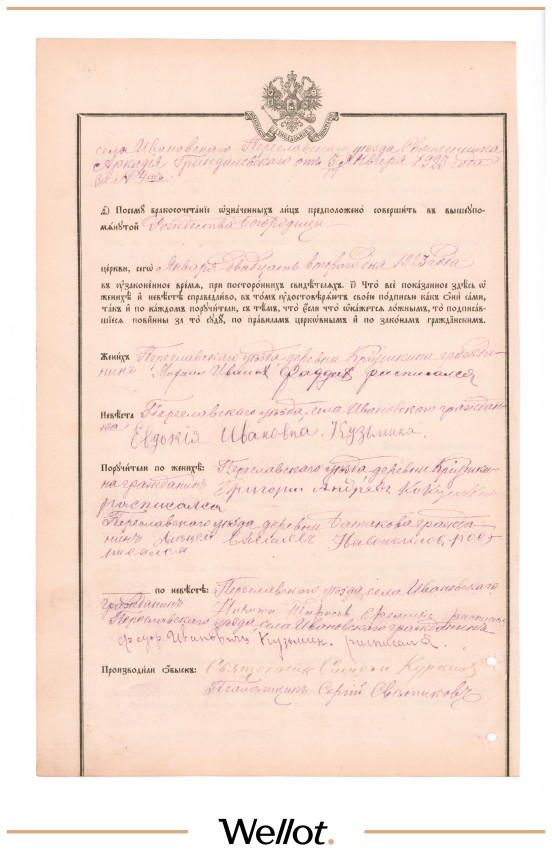 села Ивановскаго Переславскаго уѣзда Священника
Аркадія отъ Января 1923 года
за №
Д) Посему бракосочетаніе ѡзначенныхъ лицъ предположено совершить въ вышеупо-
мянутой Рождества Богородицы
церкви, сегѡ Января двадцать второго дня 1923 года
въ узаконенное время, при постороннихъ свидѣтеляхъ. І) Что всё показанное здѣсь ѡ
женихѣ и невѣстѣ справедливо, въ томъ удостовѣряютъ своею подписью какъ они сами,
такъ и по каждомъ поручители, съ тѣмъ, что если что ѡкажется ложнымъ, то подписав-
шіеся повинны за то суду, по правиламъ церковнымъ и по законамъ гражданскимъ.
Женихъ Переславскаго уѣзда деревни гражда-
нинъ Ивановъ росписался
Невѣста Переславскаго уѣзда, села Ивановскаго граждан-
ка Евдокія Ивановна Кузьмина.
Поручители по женихѣ: Переславскаго уѣзда деревни
на гражданинъ Григорій Андреевъ
росписался
Переславскаго уѣзда деревни гражда-
нинъ рос-
писался
по невѣстѣ: Переславскаго уѣзда, села Ивановскаго
гражданинъ Никита Тарасовъ росписался
Переславскаго уѣзда села Ивановскаго гражданинъ
Федор Ивановичъ Кузьмин. росписался.
Производили ѡбыскъ: Священникъ
Псаломщикъ Сергій Свѣтиковъ
Wellot.